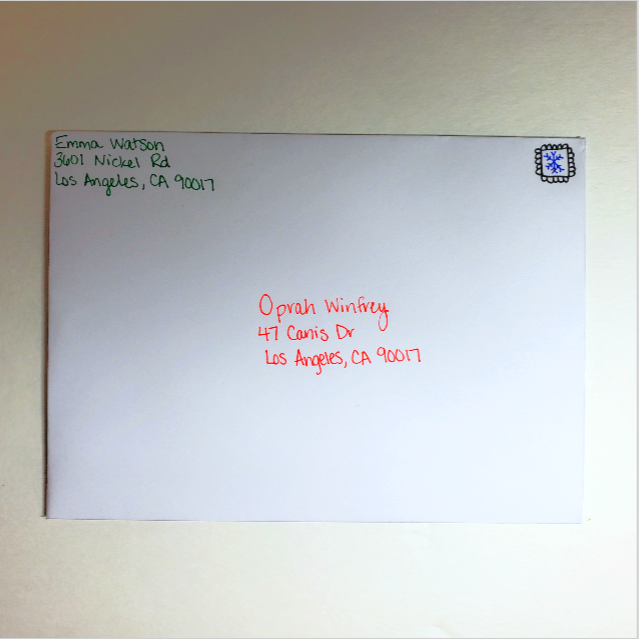 Emma Watson
3601 Nickel Rd
Los Angeles, CA 90017
Oprah Winfrey
47 Canis Dr
Los Angeles, CA 90017